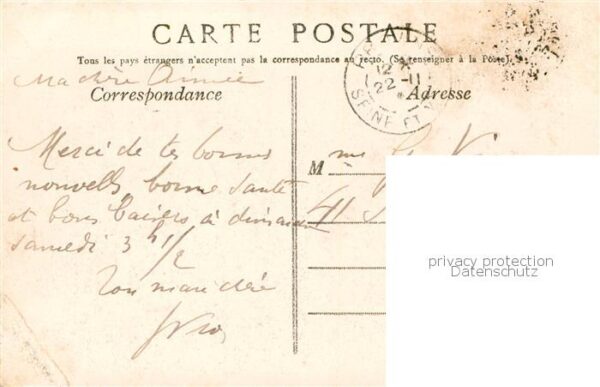 CARTE POSTALE
Tous les pays étrangers n'acceptent pas la correspondance au recto. (Se renseigner à la Poste).
Ma chère Aimée
Correspondance
Adresse
12
22-11
SEINE ET
Merci de tes bonnes
nouvelles bonne santé
et bons baisers à dimanche
samedi 3h 1/2
Ton mari chéri
M me
41
privacy protection
Datenschutz